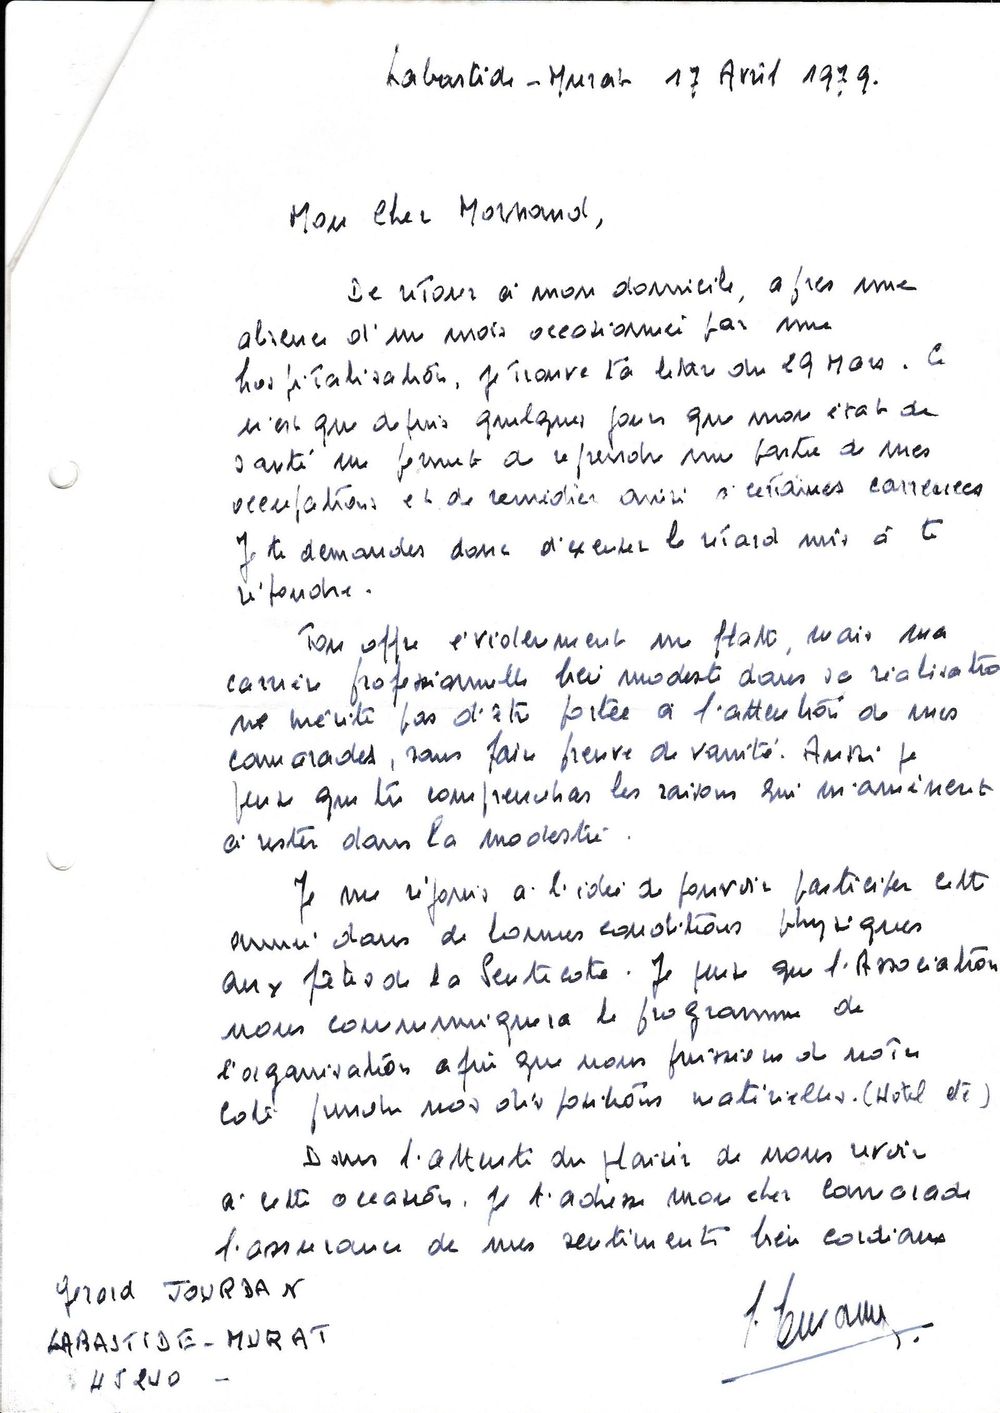 Labastide-Murat 17 Avril 1979.
Mon Cher Mornand,
De retour à mon domicile, après une
absence d'un mois occasionnée par une
hospitalisation, je trouve ta lettre du 29 Mars. Ce
n'est que depuis quelques jours que mon état de
santé me permet de reprendre une partie de mes
occupations et de remédier ainsi à certaines carrences
Je te demandes donc d'excuser le retard mis à te
répondre.
Ton offre évidemment me flatte, mais ma
carrière professionnelle bien modeste dans sa réalisation
ne mérite pas d'être portée à l'attention de mes
camarades, sans faire preuve de vanité. Aussi je
pense que tu comprendras les raisons qui m'amènent
à rester dans la modestie.
Je me réjouis à l'idée de pouvoir participer cette
année dans de bonnes conditions physiques
aux fêtes de la Pentecote. Je pense que l'Association
nous communiquera le programme de
l'organisation afin que nous puissions de notre
coté prendre nos dispositions matérielles. (Hotel etc)
Dans l'attente du plaisir de nous revoir
à cette occasion. Je t'adresse mon cher camarade
l'assurance de mes sentiments bien cordiaux
Gerard JOURDAN
LABASTIDE-MURAT
45240 -